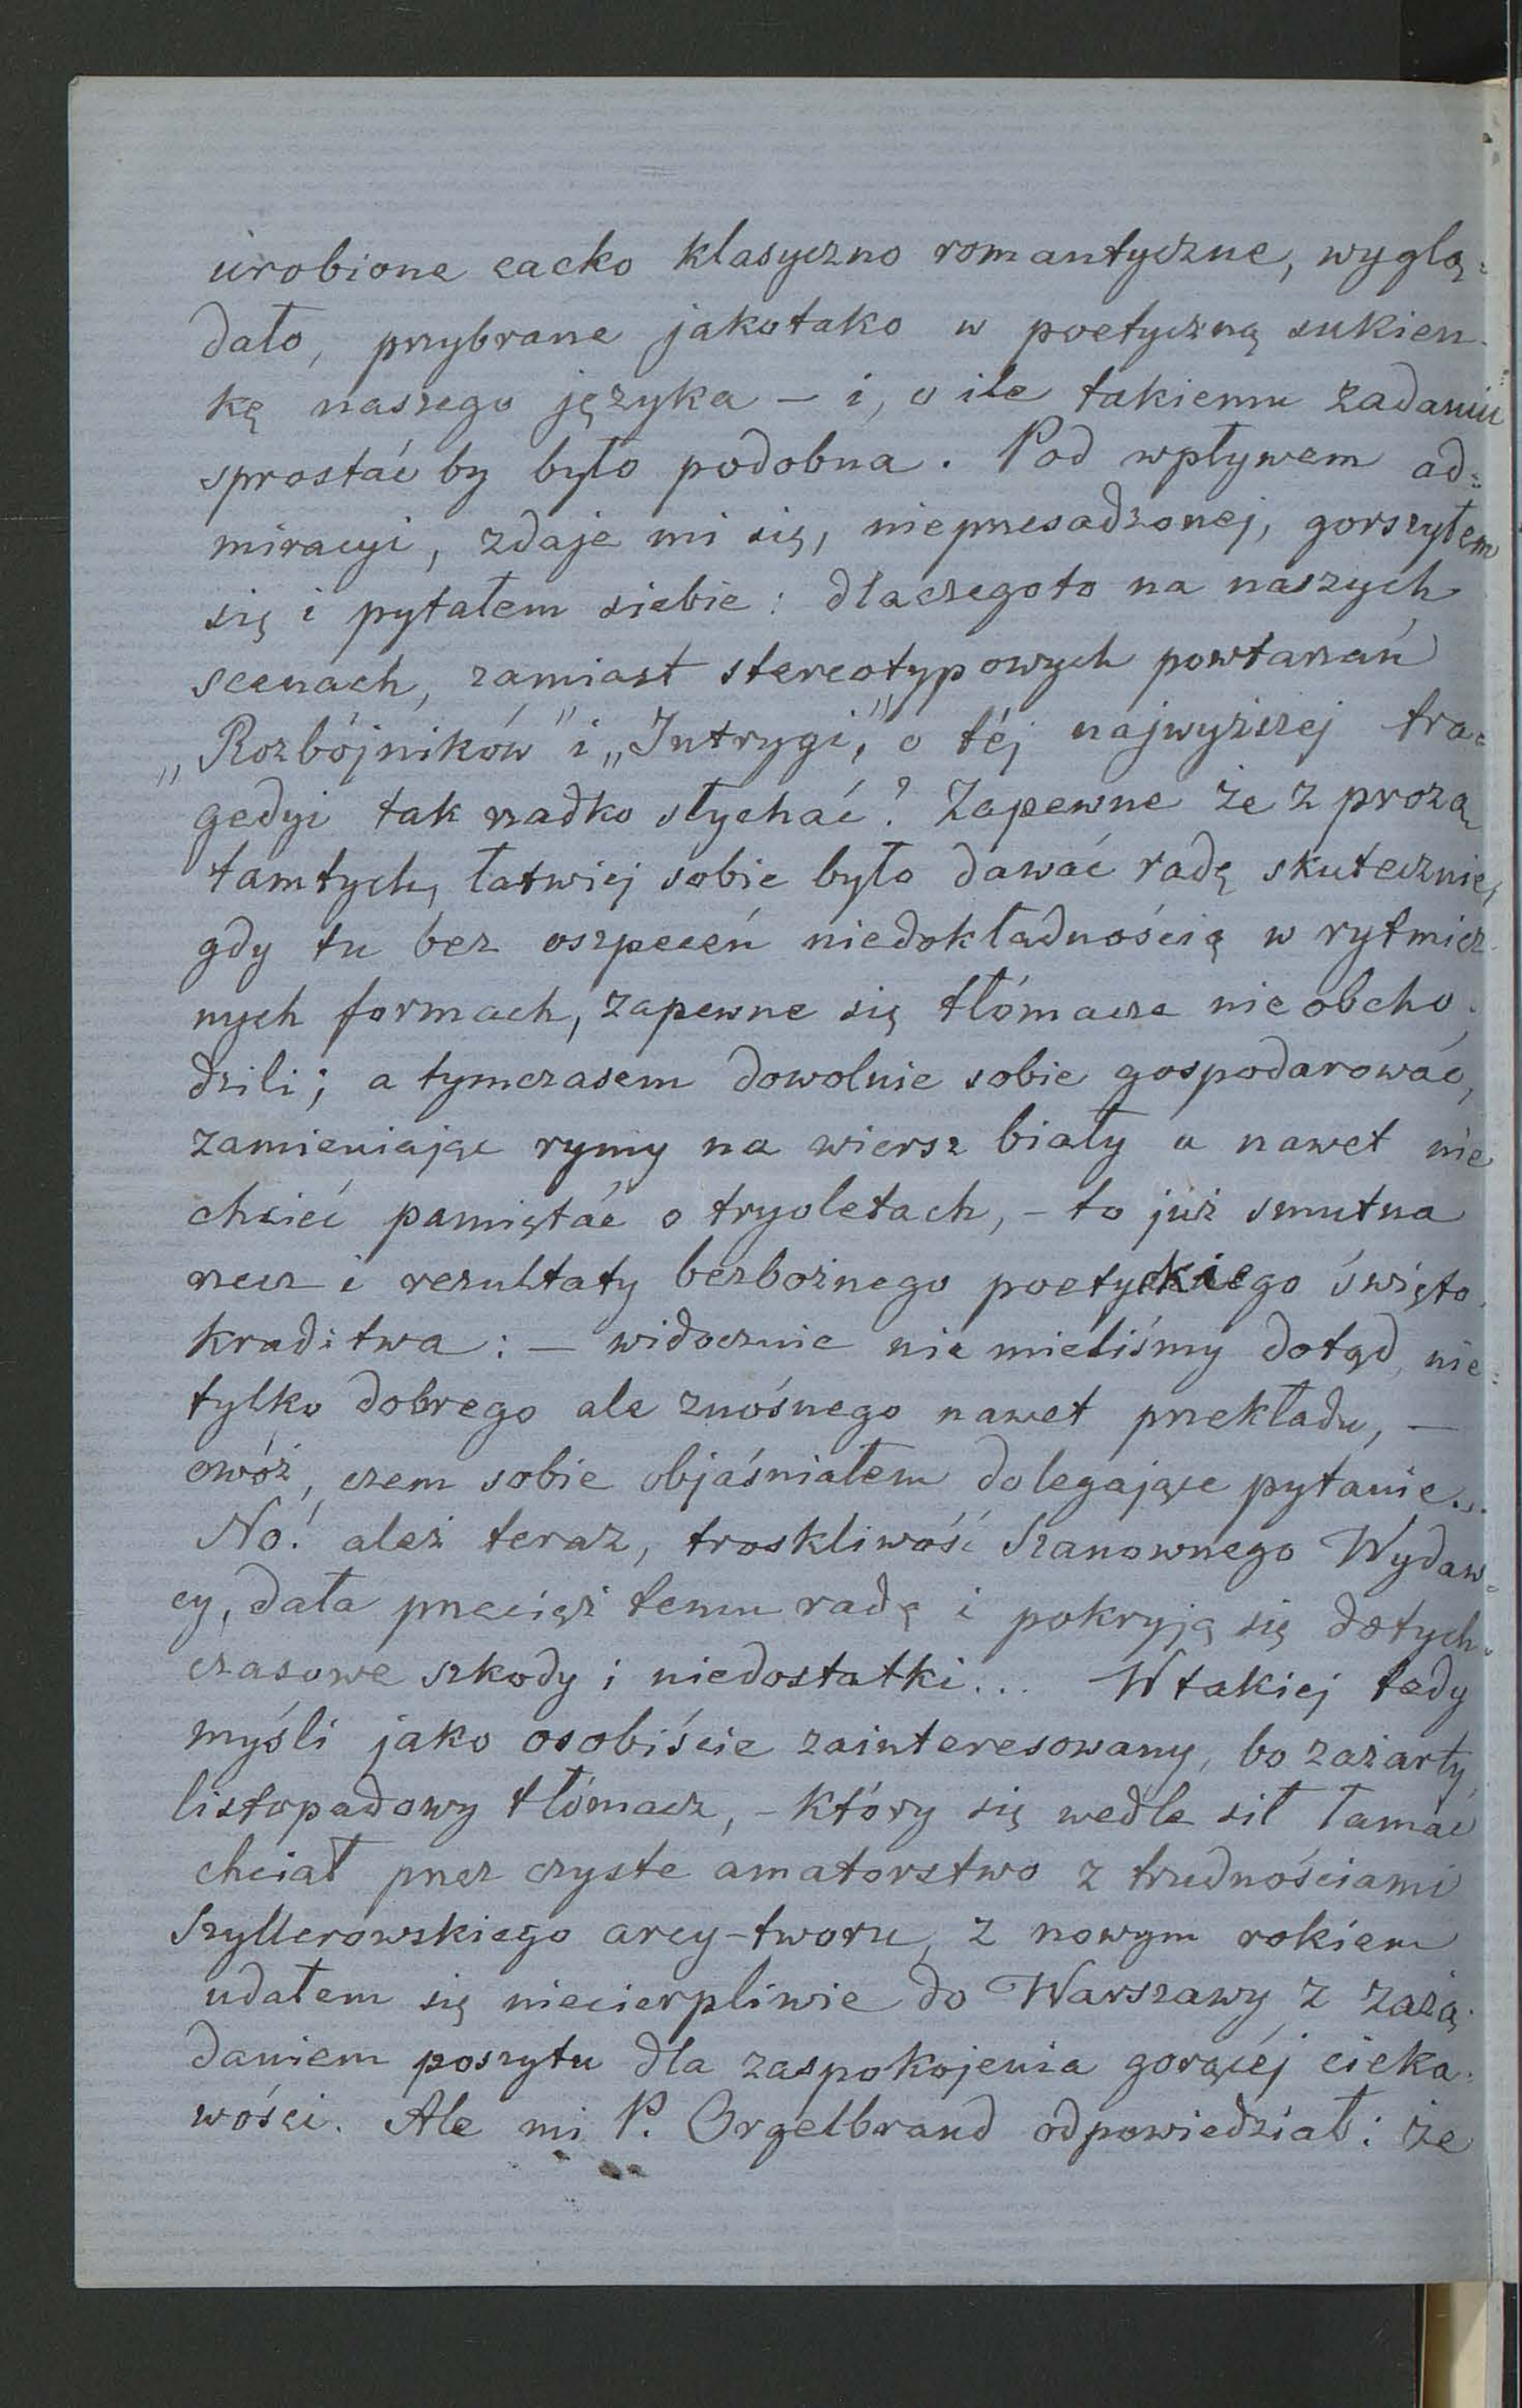 urobione cacko klasyczno romantyczne, wyglą=
dało, przybrane jakotako w poetyczną sukien-
kę naszego języka – i, o ile takiemu zadaniu
sprostać by było podobna. Pod wpływem ad=
miracyi, zdaje mi się, nieprzesadzonej, gorszyłem
się i pytałem siebie: dlaczegoto na naszych
scenach, zamiast stereotypowych powtarzań
„Rozbójników" i „Intrygi," o téj najwyższej tra=
gedyi tak rzadko słychać? Zapewne że z prozą
tamtych, łatwiej sobie było dawać radę skutecznie,
gdy tu bez oszpeceń niedokładnością w rytmicz-
nych formach, zapewne się tłómacze nie obcho-
dzili; a tymczasem dowolnie sobie gospodarować,
zamieniając rymy na wiersz biały a nawet nie
chcieć pamiętać o tryoletach, – to już smutna
rzecz i rezultaty bezbożnego poetyckiego święto-
kradztwa: – widocznie nie mieliśmy dotąd, nie=
tylko dobrego ale znośnego nawet przekładu, –
owóż, czem sobie objaśniałem dolegające pytanie...
No! aleź teraz, troskliwość Szanownego Wydaw=
cy, dała przecięż temu radę i pokryją się dotych-
czasowe szkody i niedostatki... W takiej tedy
myśli jako osobiście zainteresowany, bo zażarty
listopadowy tłómacz, – który się wedle sił łamać
chciał przez czyste amatorstwo z trudnościami
Szyllerowskiego arcy-tworu, z nowym rokiem
udałem się niecierpliwie do Warszawy z zażą-
daniem poszytu dla zaspokojenia gorącéj cieka-
wości. Ale mi P. Orgelbrand odpowiedział: że